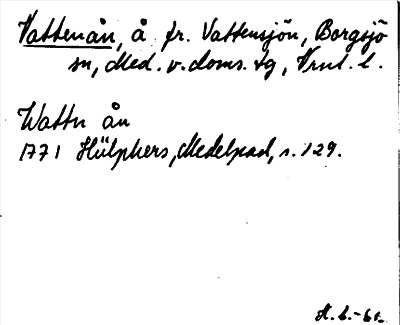 Vattenån, å fr. Vattensjön, Borgsjö
sn, Med. v. doms. tg, Vrnl. l.
Wattn ån
1771 Hülphers, Medelpad, s. 129.